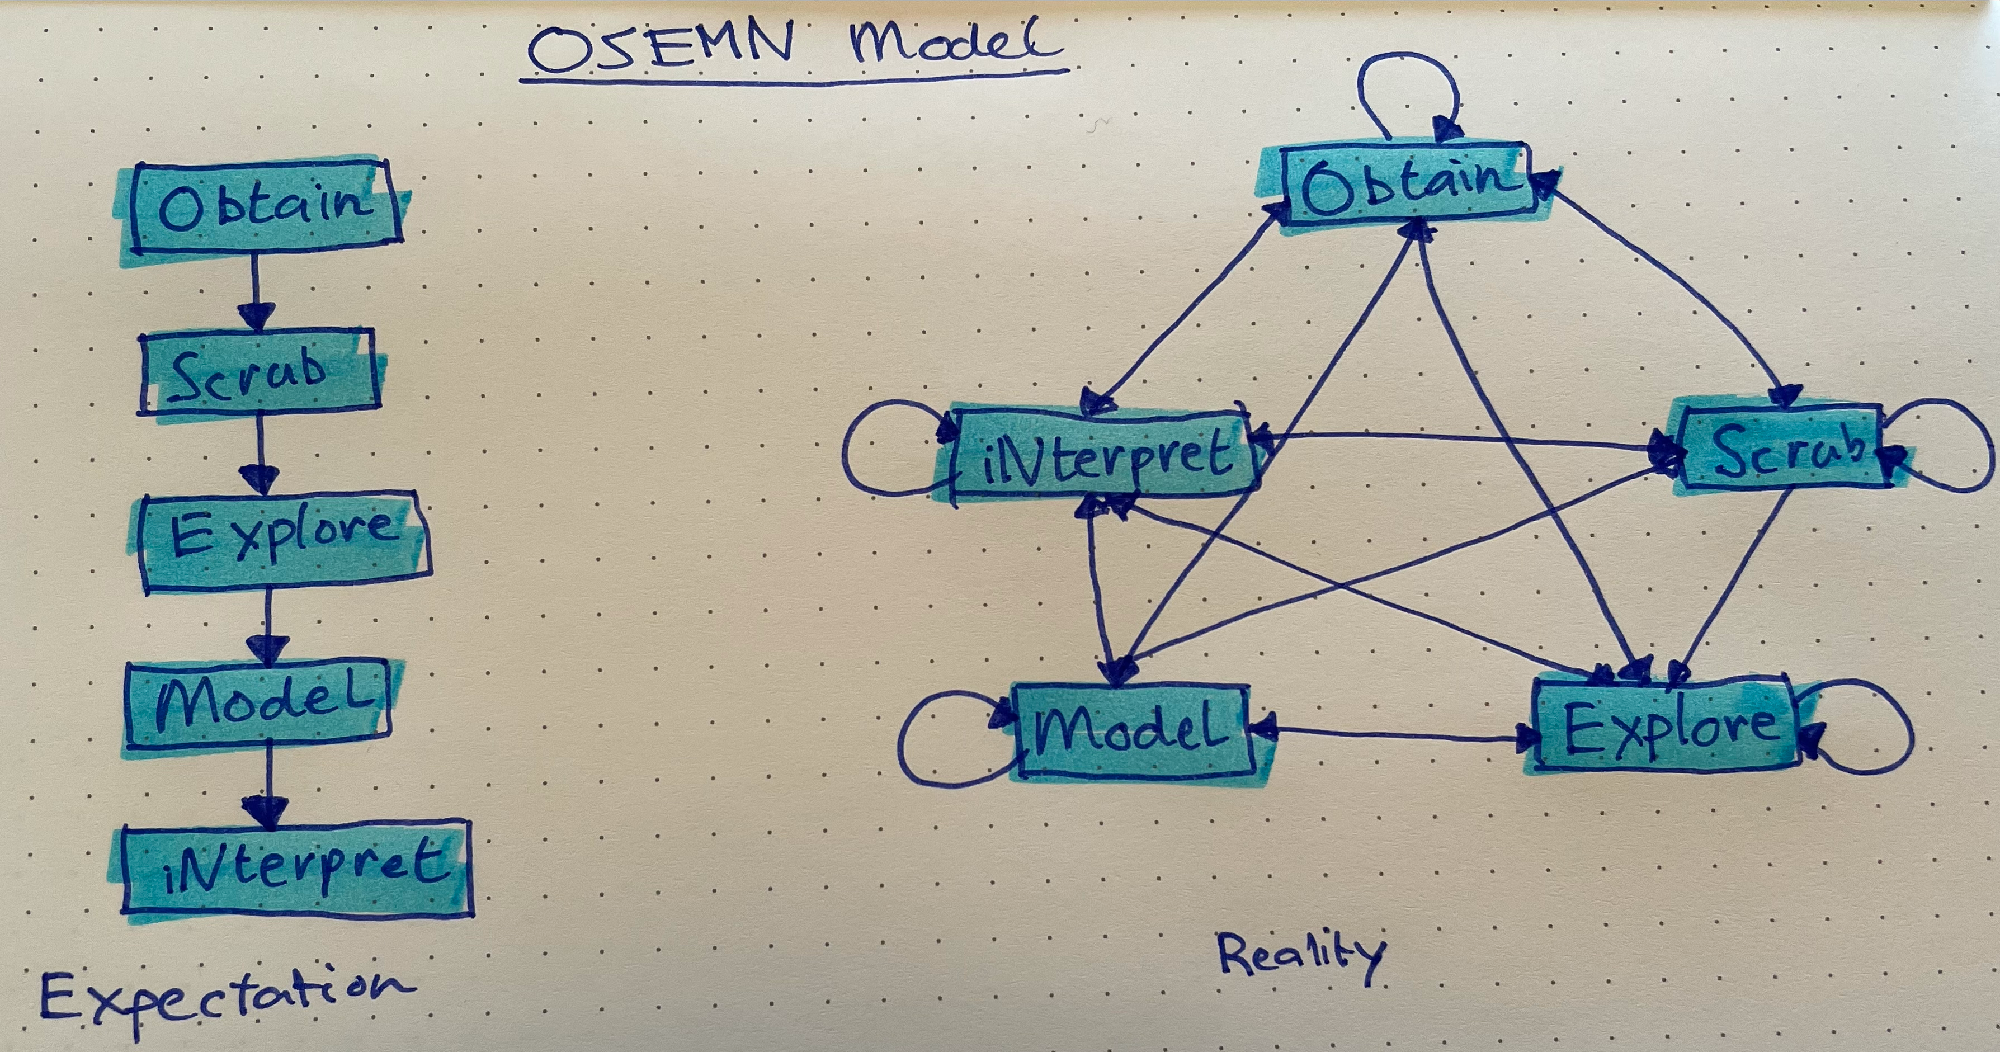 OSEMN Model
Obtain
Scrub
Explore
Model
iNterpret
Expectation
Obtain
iNterpret
Scrub
Model
Explore
Reality